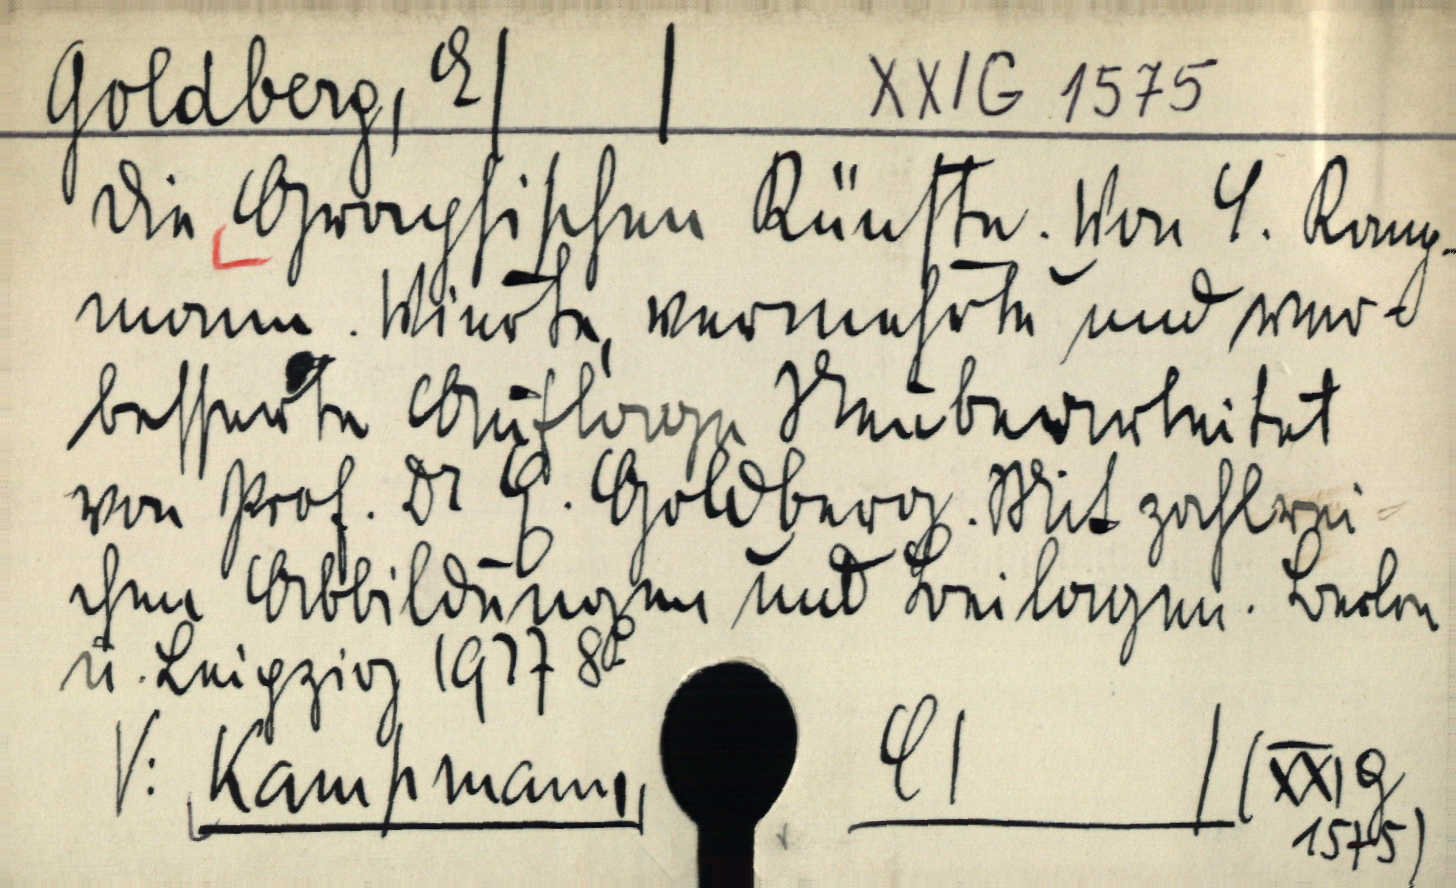 Goldberg, E| | XXIG 1575
Die Graphischen Künste. Von C. Kamp-
mann. Vierte, vermehrte und ver-
besserte Auflage Neubearbeitet
von Prof. Dr E. Goldberg. Mit zahlrei-
chen Abbildungen und Beilagen. Berlin
u. Leipzig 1927 8°
V: Kampmann, C| | (XXIG
1575)